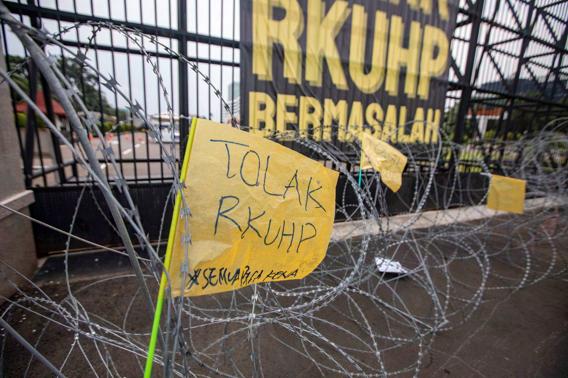 RKUHP
BERMASALAH
TOLAK
RKUHP
#SEMUABISAKENA